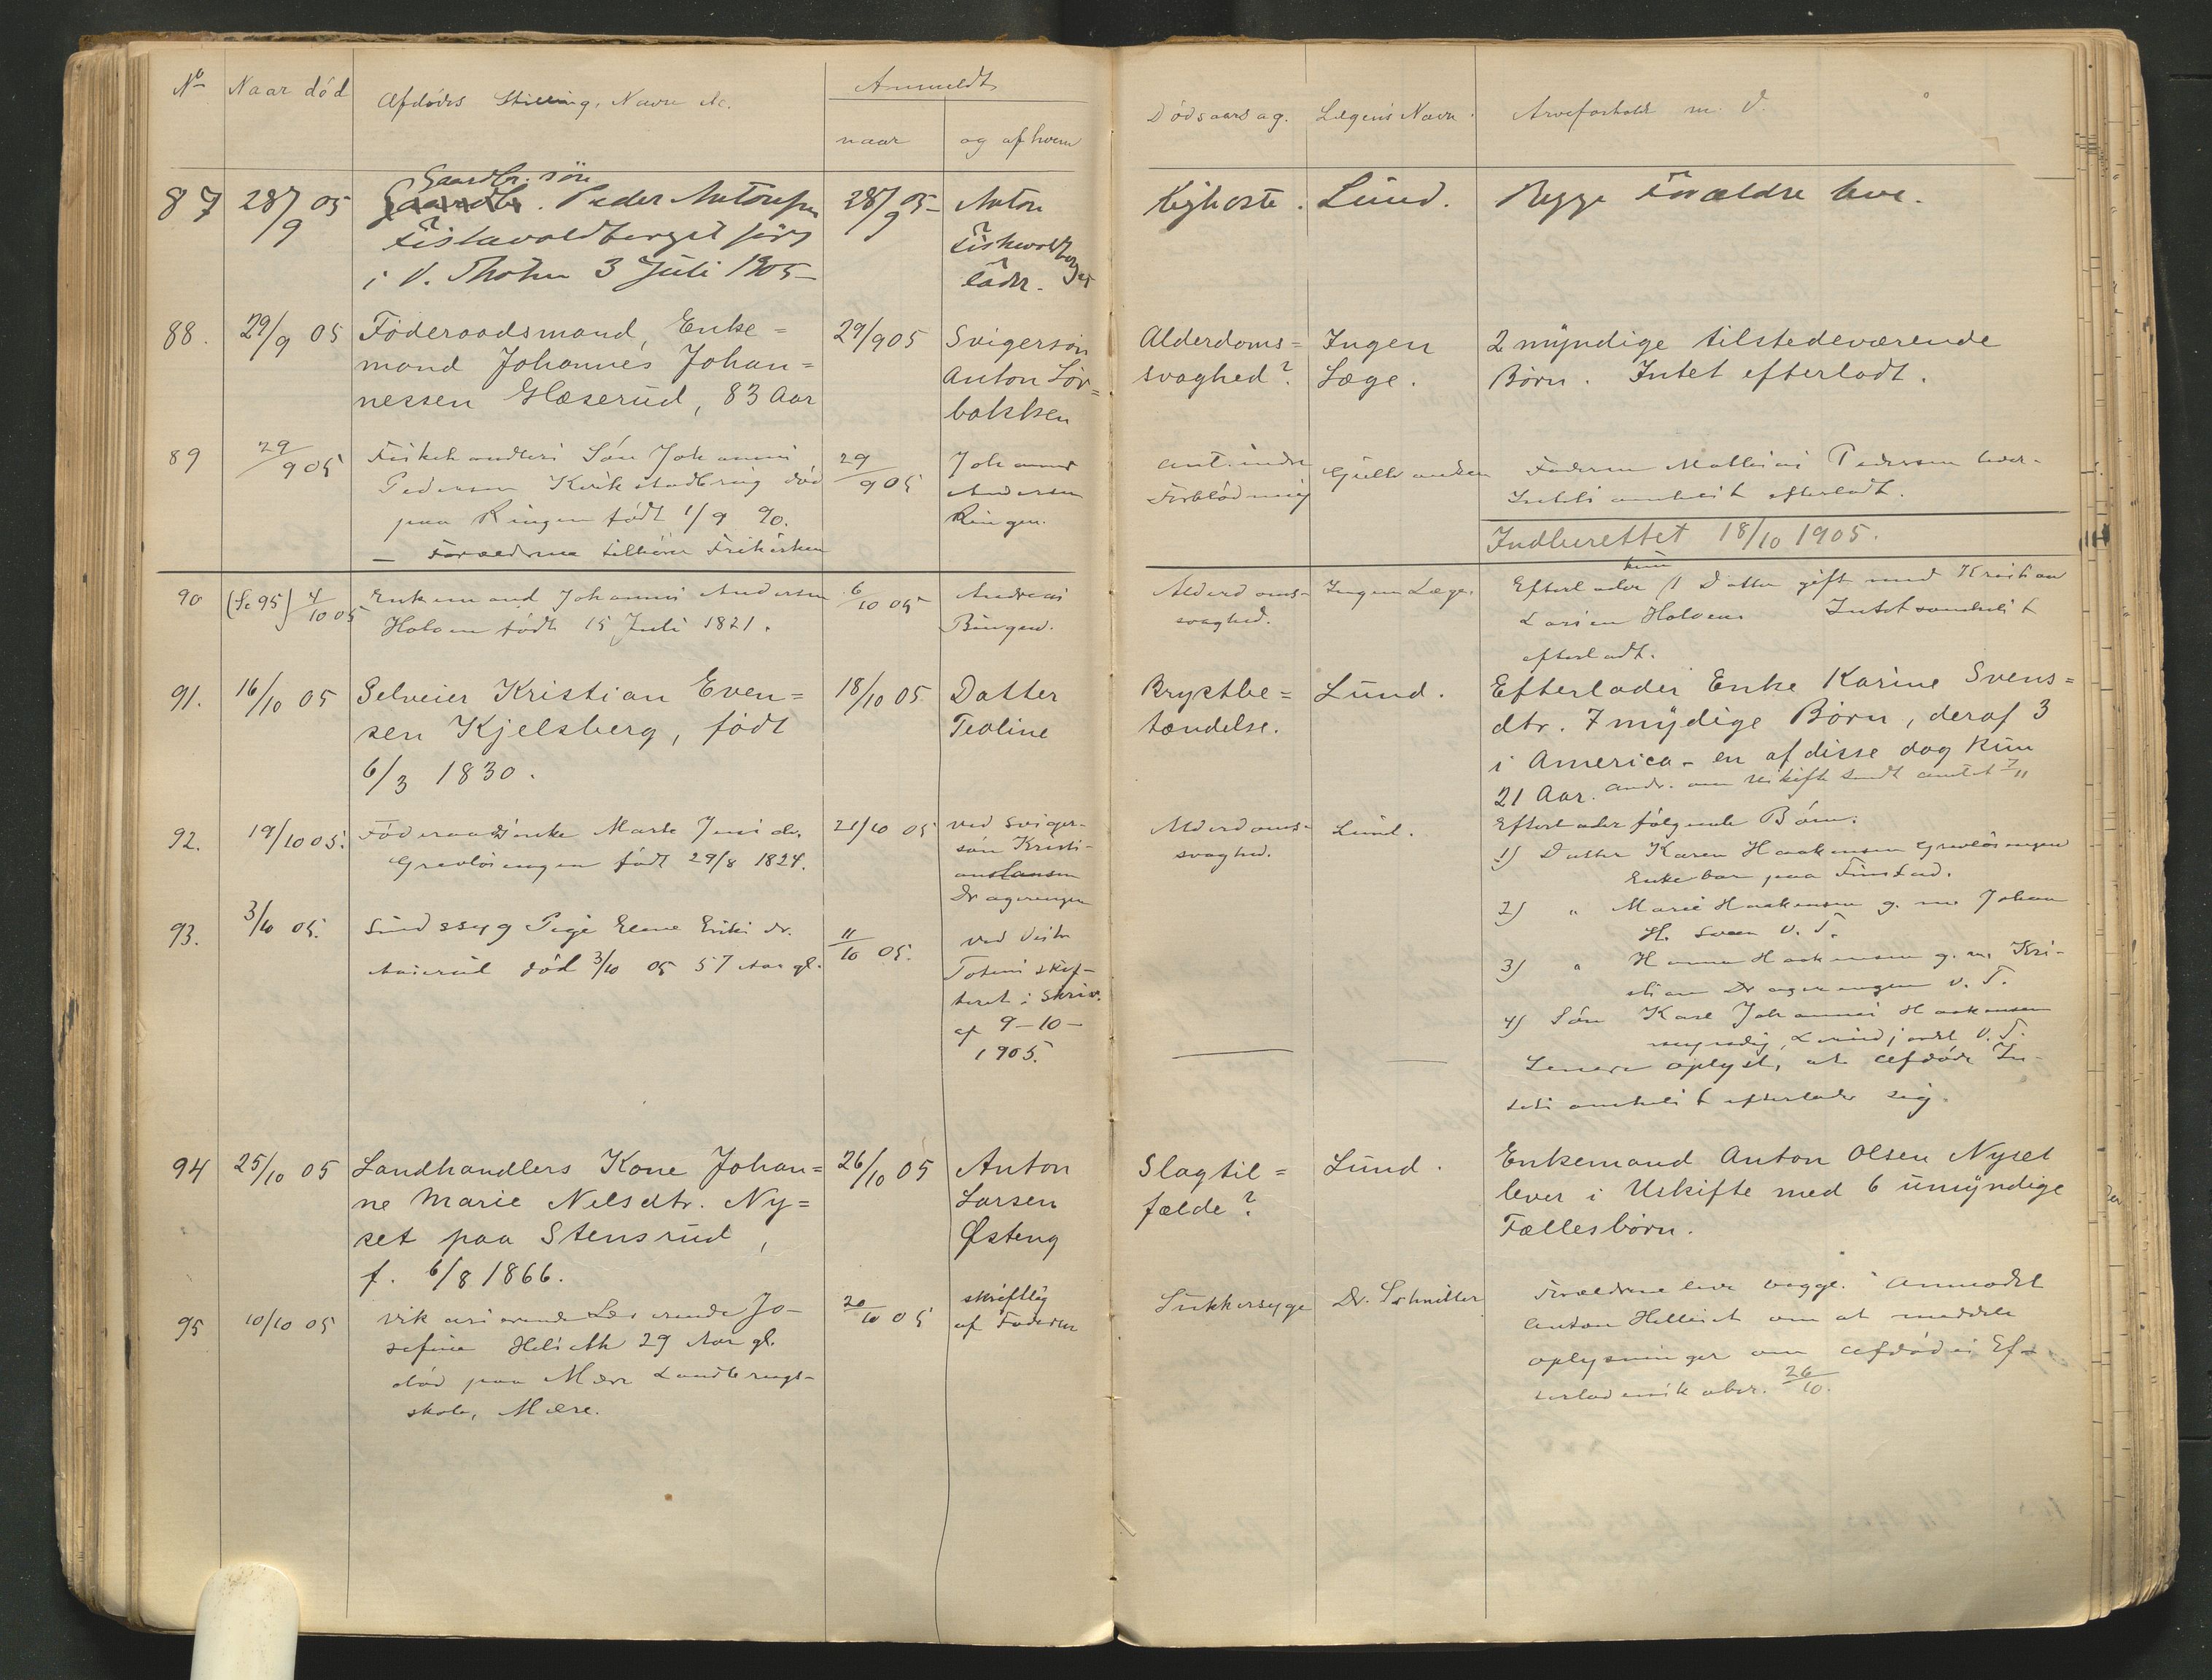 No Naar död Afdødes Stilling, Navn &c. Anmeldt
naar og af hvem
Dödsaarsag. Lægens Navn. Arveforhold m. V.
87 28/9 05 Gaardbr. søn
Peder Antonsen
født
i V. Thoten 3 Juli 1905
28/9 05 Anton
Fader.
Kighoste. Lund. Begge Forældre leve.
88. 29/9 05 Föderaadsmand, Enke=
mand Johannes Johan=
nessen Glæserud, 83 Aar
29/9 05 Svigersøn
Anton Lör=
bakken
Alderdoms=
svaghed?
Ingen
Læge.
2 myndige tilstedeværende
Børn. Intet efterladt.
89 29/9 05 Fiskehandlers Sön Johannes
Pedersen død
paa Ringen født 1/9 90.
— Forældrene tilhører Frikirken
29/9 05 Johannes
Andersen
Ringen.
Ant. indre
Forblødning
Gulbrandsen
Faderen Mathias Pedersen lever.
Intet somhelst efterladt.
Indberettet 18/10 1905.
90 (Se 95) 4/10 05 Enkemand Johannes Andersen
Holven født 15 Juli 1821.
6/10 05 Andreas
Bingen.
Alderdoms-
svaghed.
Ingen Læge.
kun
Efterlader 1 Datter gift med Kristian
Larsen Holven. Intet somhelst
efterladt.
91. 16/10 05 Selveier Kristian Even=
sen Kjelsberg, født
6/3 1830.
18/10 05 Datter
Teoline
Brystbe=
tændelse.
Lund.
Efterlader Enke Karine Svens=
dtr. 7 mydige Børn, deraf 3
i America - en af disse dog kun
21 Aar. andr. om uskifte sendt amtet 7/11
92. 19/10 05. Föderaadsenke Marte Jensdr.
Grevlösingen født 29/8 1824.
21/10 05 ved Sviger-
sön Kristi-
an Lansen
Drageringen
Alderdoms-
svaghed.
Lund.
Efterlader følgende Börn:
1) Datter Karen Haakensen Grevlösingen
Enke bor paa Finstad.
2) " Marie Haakensen g. m. Johan
H. Sveen V. T.
3) " Hanna Haakensen g. m. Kri-
stian Drageringen V. T.
4) Sön Karl Johannes Haakensen
myndig, V. T.
93. 3/10 05. Sindssyg Pige Elene Eriksdr.
død 3/10 05 57 Aar gl.
11/10 05. ved Vestre
Totens skif-
teret i Skriv.
af 9-10-
1905.
— —
Senere oplyst, at Afdöde In-
tet somhelst efterlader sig.
94 25/10 05 Landhandlers Kone Johan=
ne Marie Nelsdtr. Ny=
set paa Stensrud,
f. 6/8 1866.
26/10 05 Anton
Larsen
Østeng
Slagtil=
fælde?
Lund.
Enkemand Anton Olsen Nyset
lever i Uskifte med 6 umyndige
Fællesbörn.
95 10/10 05 Vikarierende Lærerinde Jo-
sefine 29 Aar gl.
død paa Mære Landbrugs-
skole, Mære.
20/10 05 skriftlig
af Faderen
Sukkersyge Dr. Schnitler
Forældrene leve begge. Anmodet
Anton om at meddele
oplysninger om Afdödes Ef-
terladenskaber. 26/10.